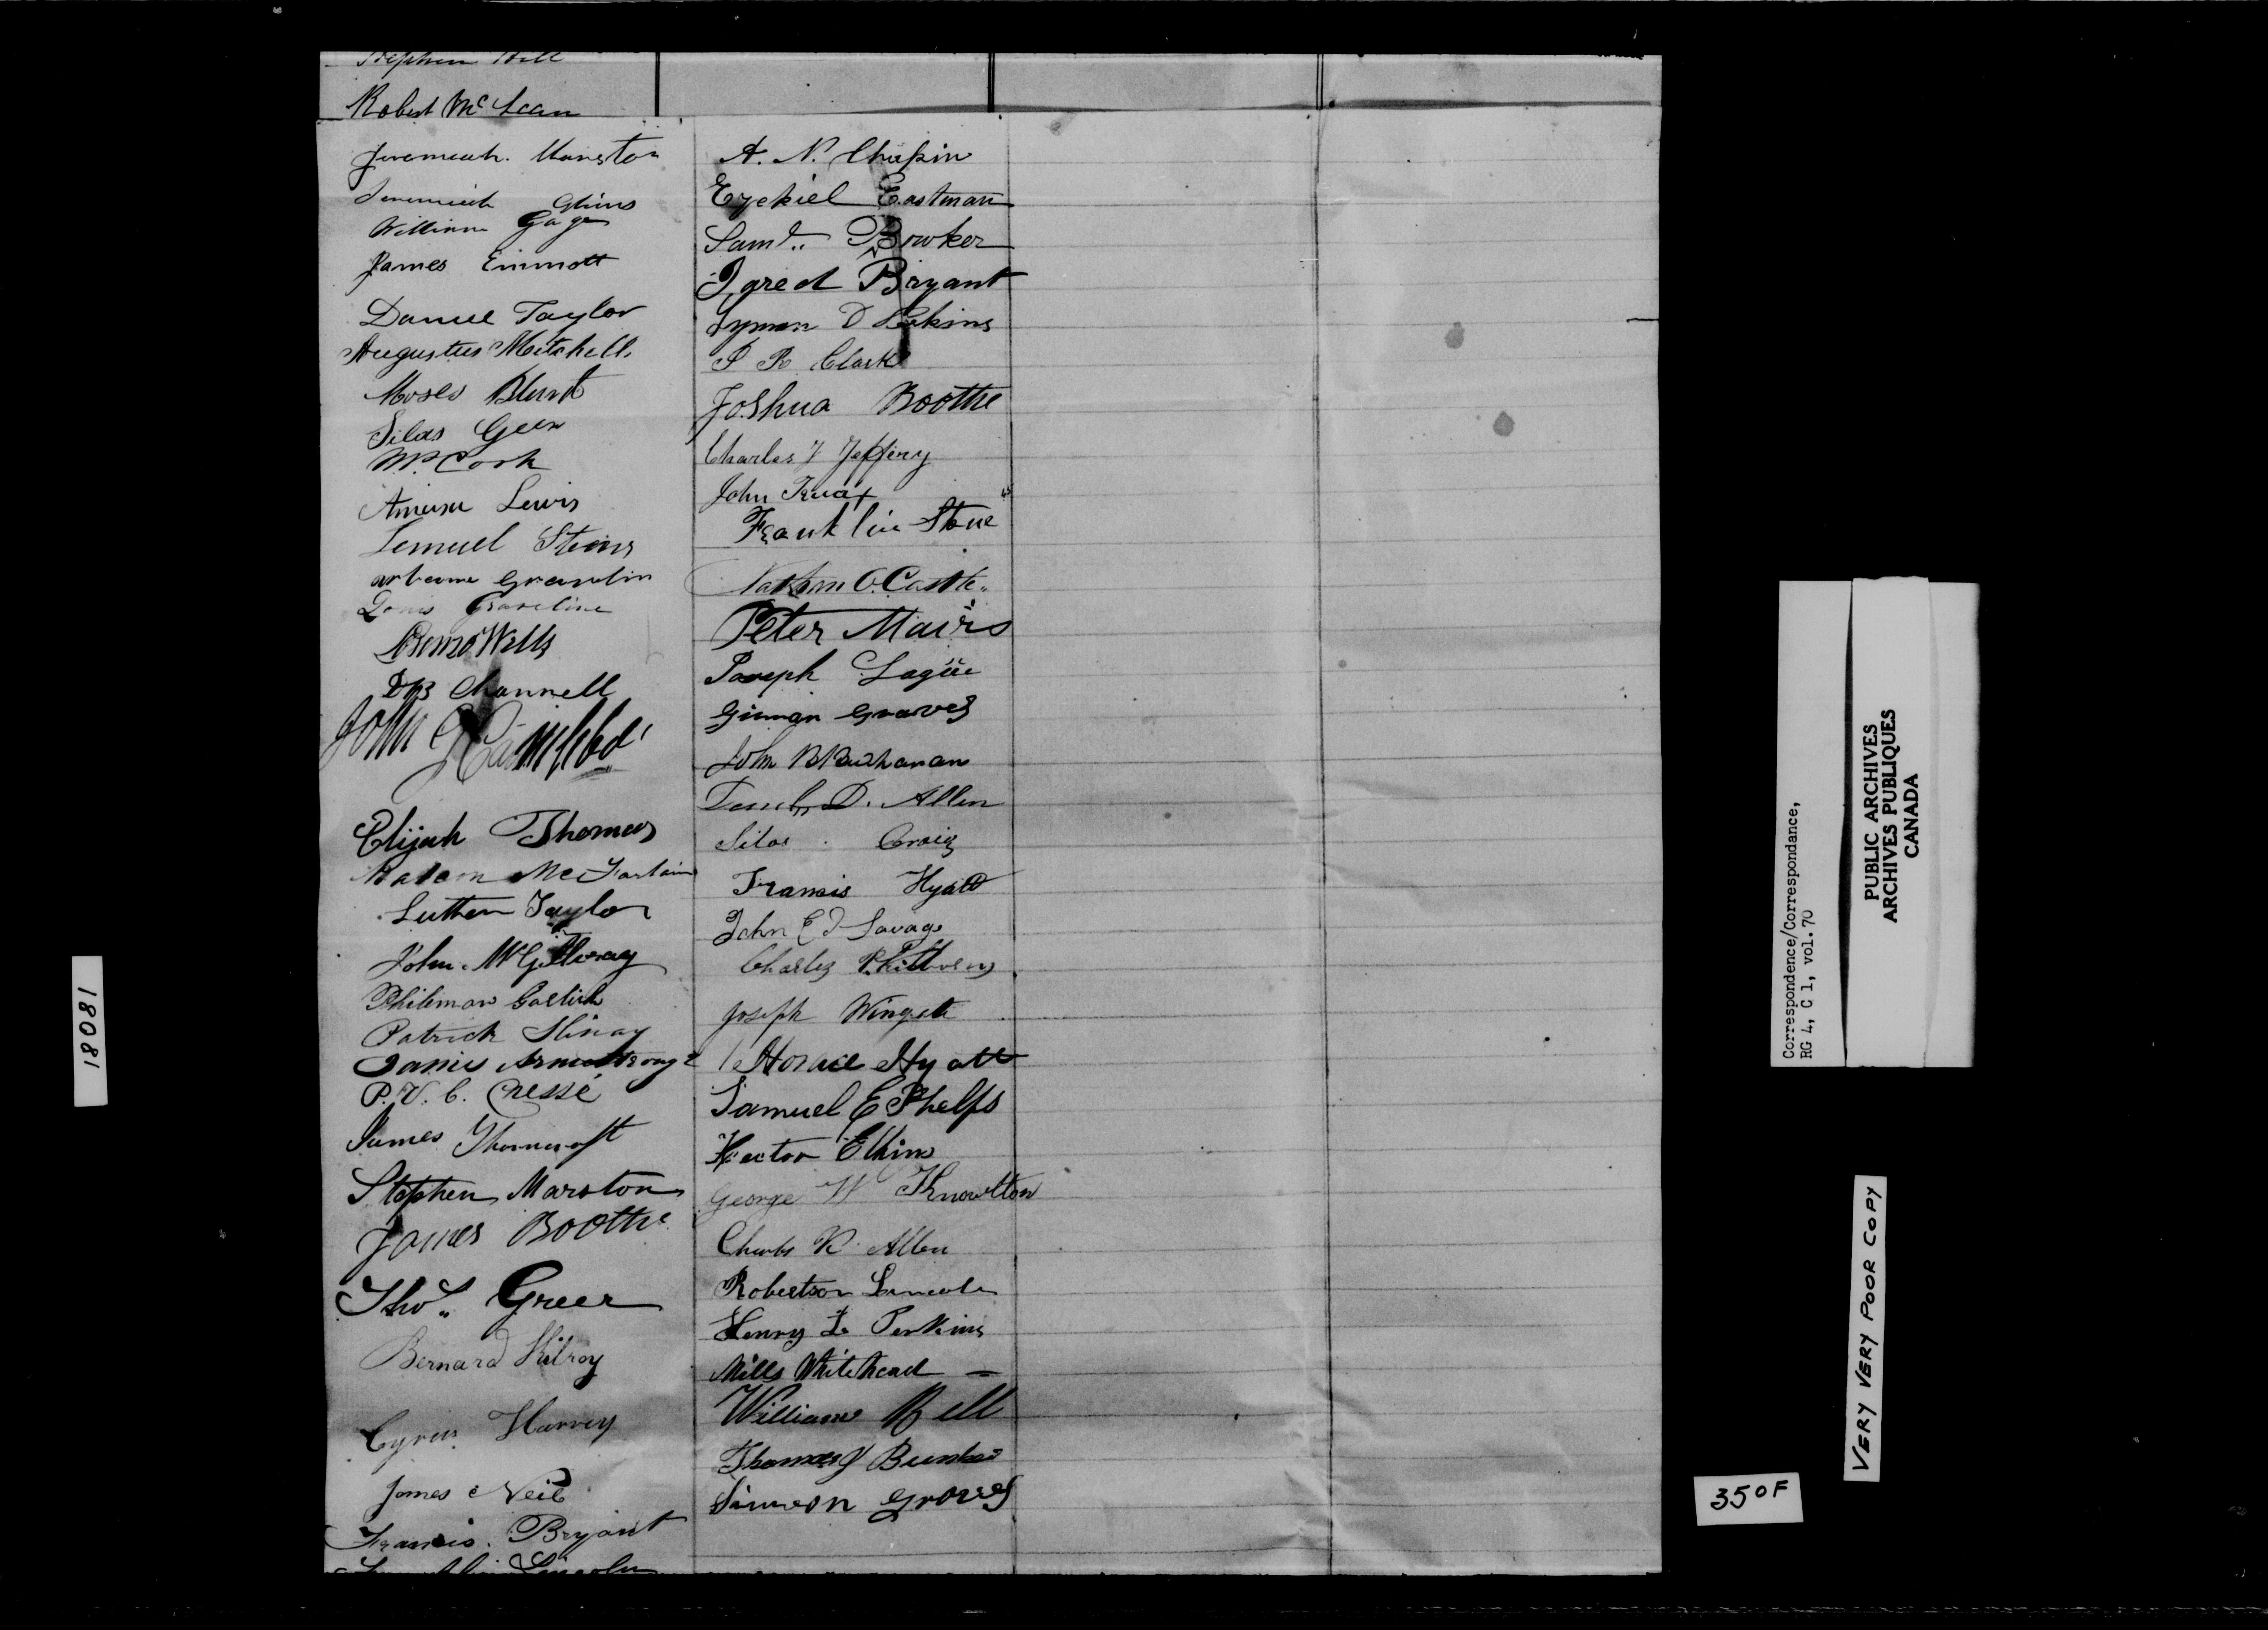 Stephen Bell
Robert McLean
Jeremiah Marston
Jeremiah Glines
William Gage
James Emmott
Daniel Taylor
Augustus Mitchell
Moses Blunt
Silas Geer
Cook
Amasa Lewis
Lemuel Stevens
Louis Graveline
Wells
Channell
John Campbel
Elijah Thomas
McFarlane
Luther Taylor
John McGillvray
Philimon
Patrick
James Armstrong
P. V. C. Cressé
James Thorncroft
Stephen Marston
James Boothe
Thos. Greer
Bernard Kilroy
Cyrus Harvey
James Neil
Francis Bryant
Lincoln
A. N. Chapin
Ezekiel Eastman
Saml. Bowker
Jared Bryant
Lyman D Perkins
S R Clark
Joshua Boothe
Charles F Jeffery
John Truax
Franklin Stone
Nathan O. Castle
Peter Mairs
Joseph Lagüe
Gilman Graves
John B Buchanan
D. Allen
Silas Craig
Francis Hyatt
John E D Savage
Charles
Joseph Wingate
Horace Hyatt
Samuel E Phelps
Hector Elkins
George W Knowlton
Charles R. Allen
Robertson Lincoln
Henry L Perkins
Mills Whitehead
William Bell
Thomas J Bunker
Simeon Groves
18081
Correspondence/Correspondance,
RG 4, C 1, vol. 70
PUBLIC ARCHIVES
ARCHIVES PUBLIQUES
CANADA
VERY VERY POOR COPY
350F